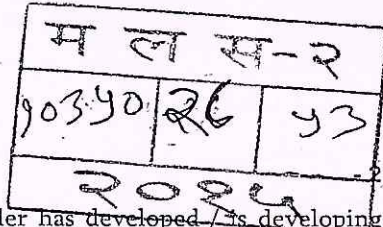 म ल स-२
१०३५० २६ ५३
२०१५
ler has developed / is developing